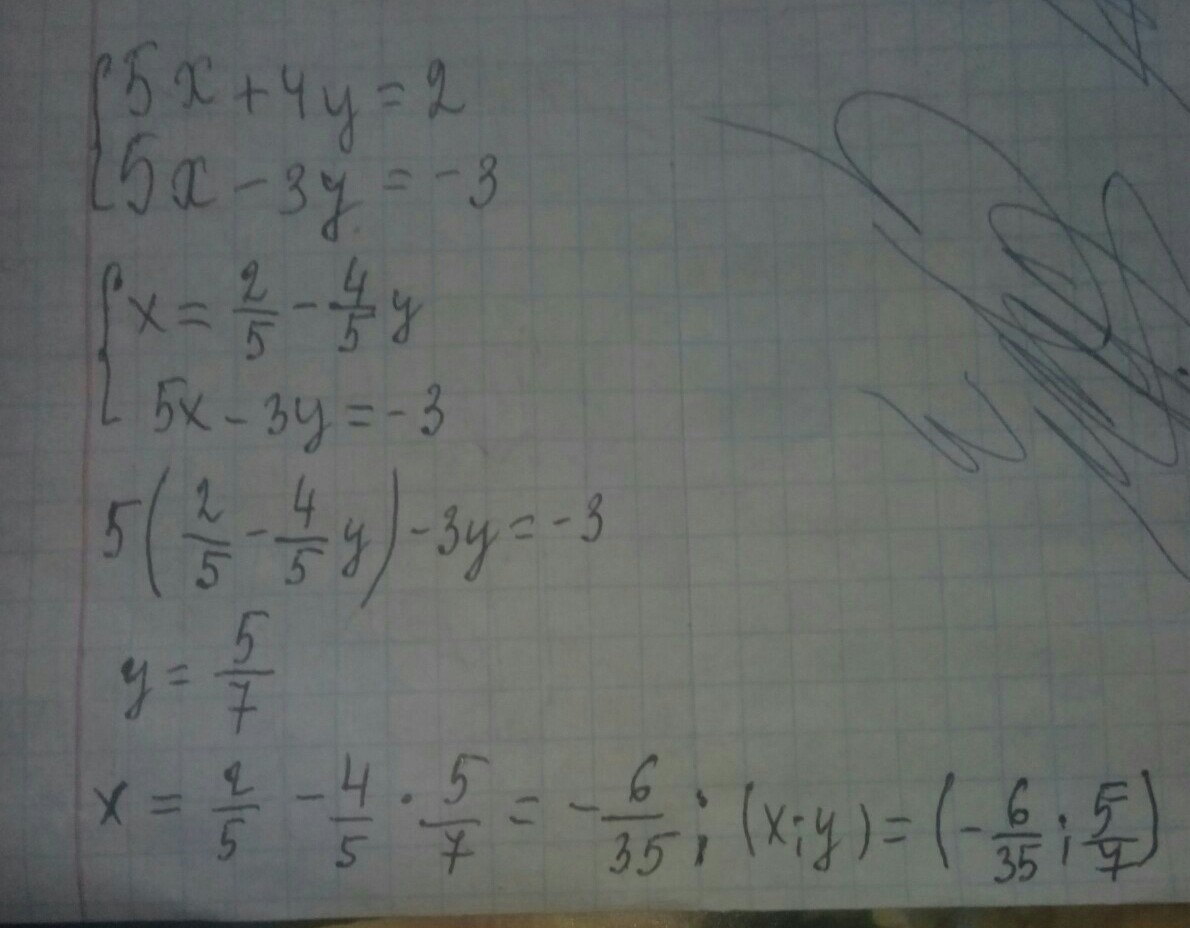 {5x + 4y = 2
5x - 3y = -3
{x = 2/5 - 4/5 y
5x - 3y = -3
5(2/5 - 4/5 y) - 3y = -3
y = 5/7
x = 2/5 - 4/5 · 5/7 = - 6/35; (x;y) = (- 6/35; 5/7)